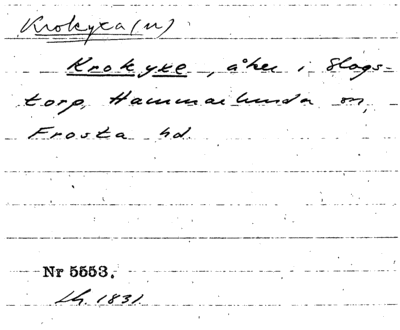 Krokyxa (n)
Krokyxe, åker i Slags-
torp, Hammarlunda sn,
Frosta hd
Nr 5553.
Lh. 1831